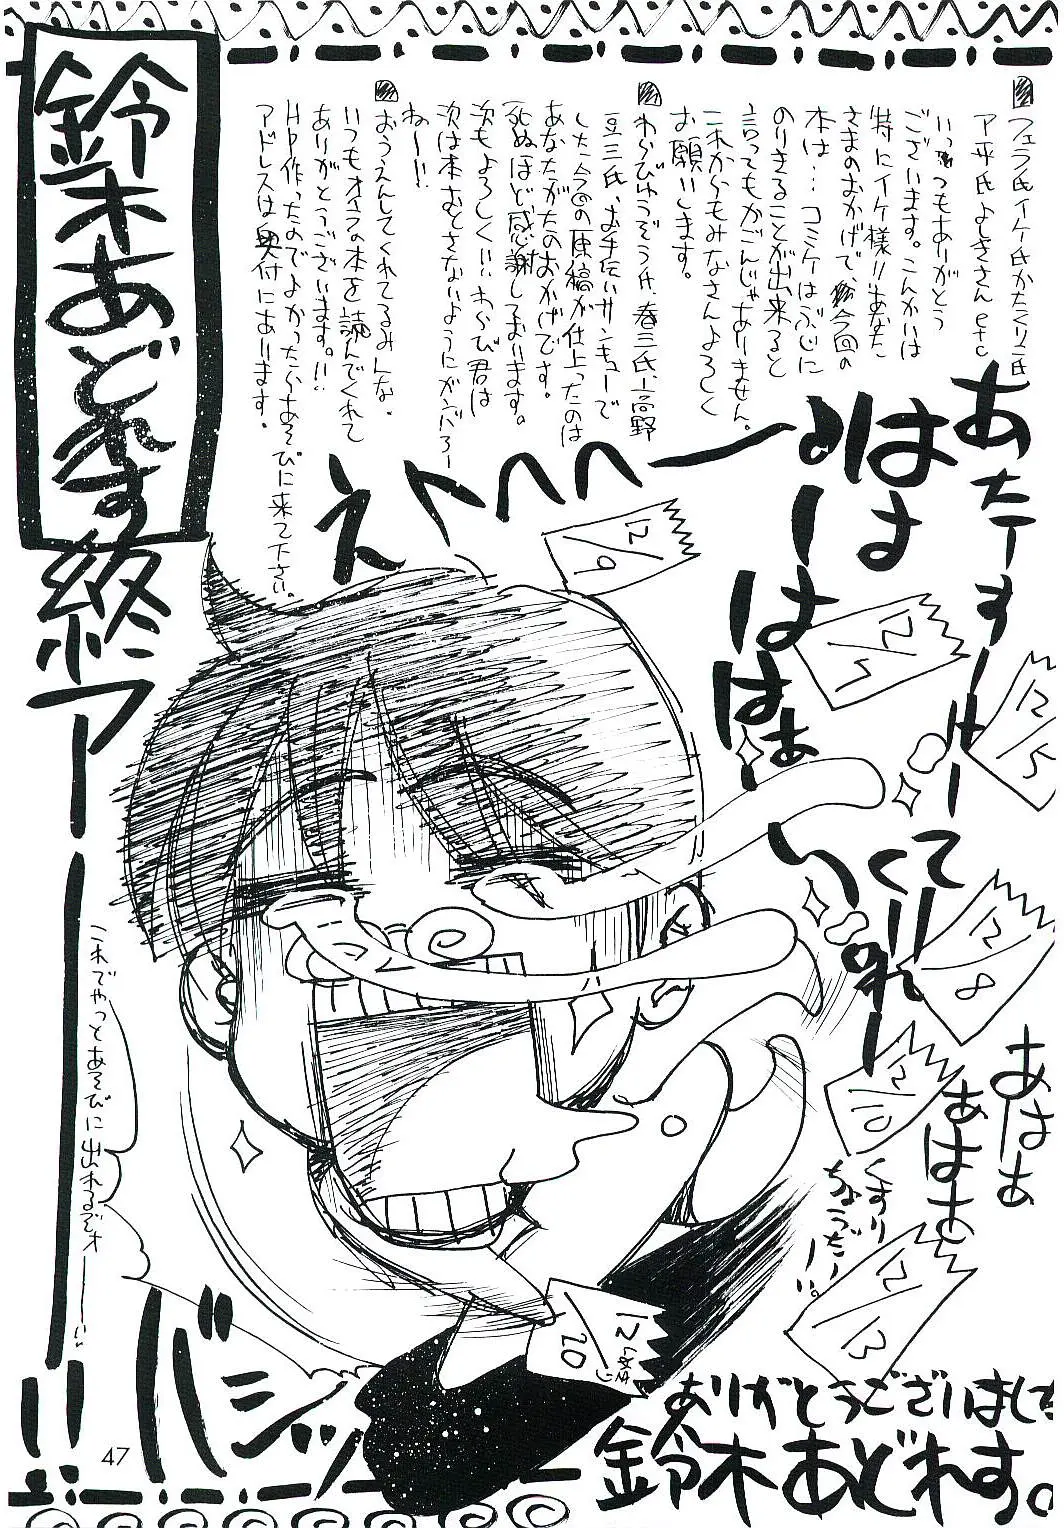 フェラ氏イケ氏かたくり氏
ア平氏よしきさんetc
いつもありがとう
ございます。こんかいは
特にイケ様!!あなた
さまのおかげで今回の
本は…コミケはぶじに
のりきることが出来ると
言ってもかごんじゃありません。
これからもみなさんよろしく
お願いします。
わらびゅうぞう氏、春三氏、高野
豆三氏、お手伝いサンキューで
した今回の原稿が仕上ったのは
あなたがたのおかげです。
死ぬほど感謝しております。
次もよろしくい、わらび君は
次は本おとさないようにガンバろー
ねー!!
おうえんしてくれてるみんな、
いつもオイラの本を読んでくれて
ありがとうございます。!!
HP作ったのでよかったらあそびに来て下さい。
アドレスは奥付にあります。
鈴木あどれす終アーーー!!
あたーすーけーてーくれー
はははははぁ
えへへへー
いーのー
あはぁ
あはぁ
くすり
ちょうだーい。
12/9
12/5
12/5
12/8
12/10
12/13
12/20
しめきり
これでやっとあそびに出れるぞォーー!!
バシッ
ありがとうございました
鈴木あどれす。
47